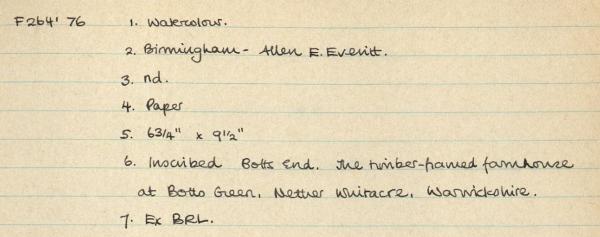 F264' 76 1. Watercolour.
2. Birmingham - Allen E. Everitt.
3. nd.
4. Paper
5. 63/4" x 91/2"
6. Inscribed Botts End. The timber-framed farmhouse
at Botts Green, Nether Whitacre, Warwickshire.
7. Ex BRL.